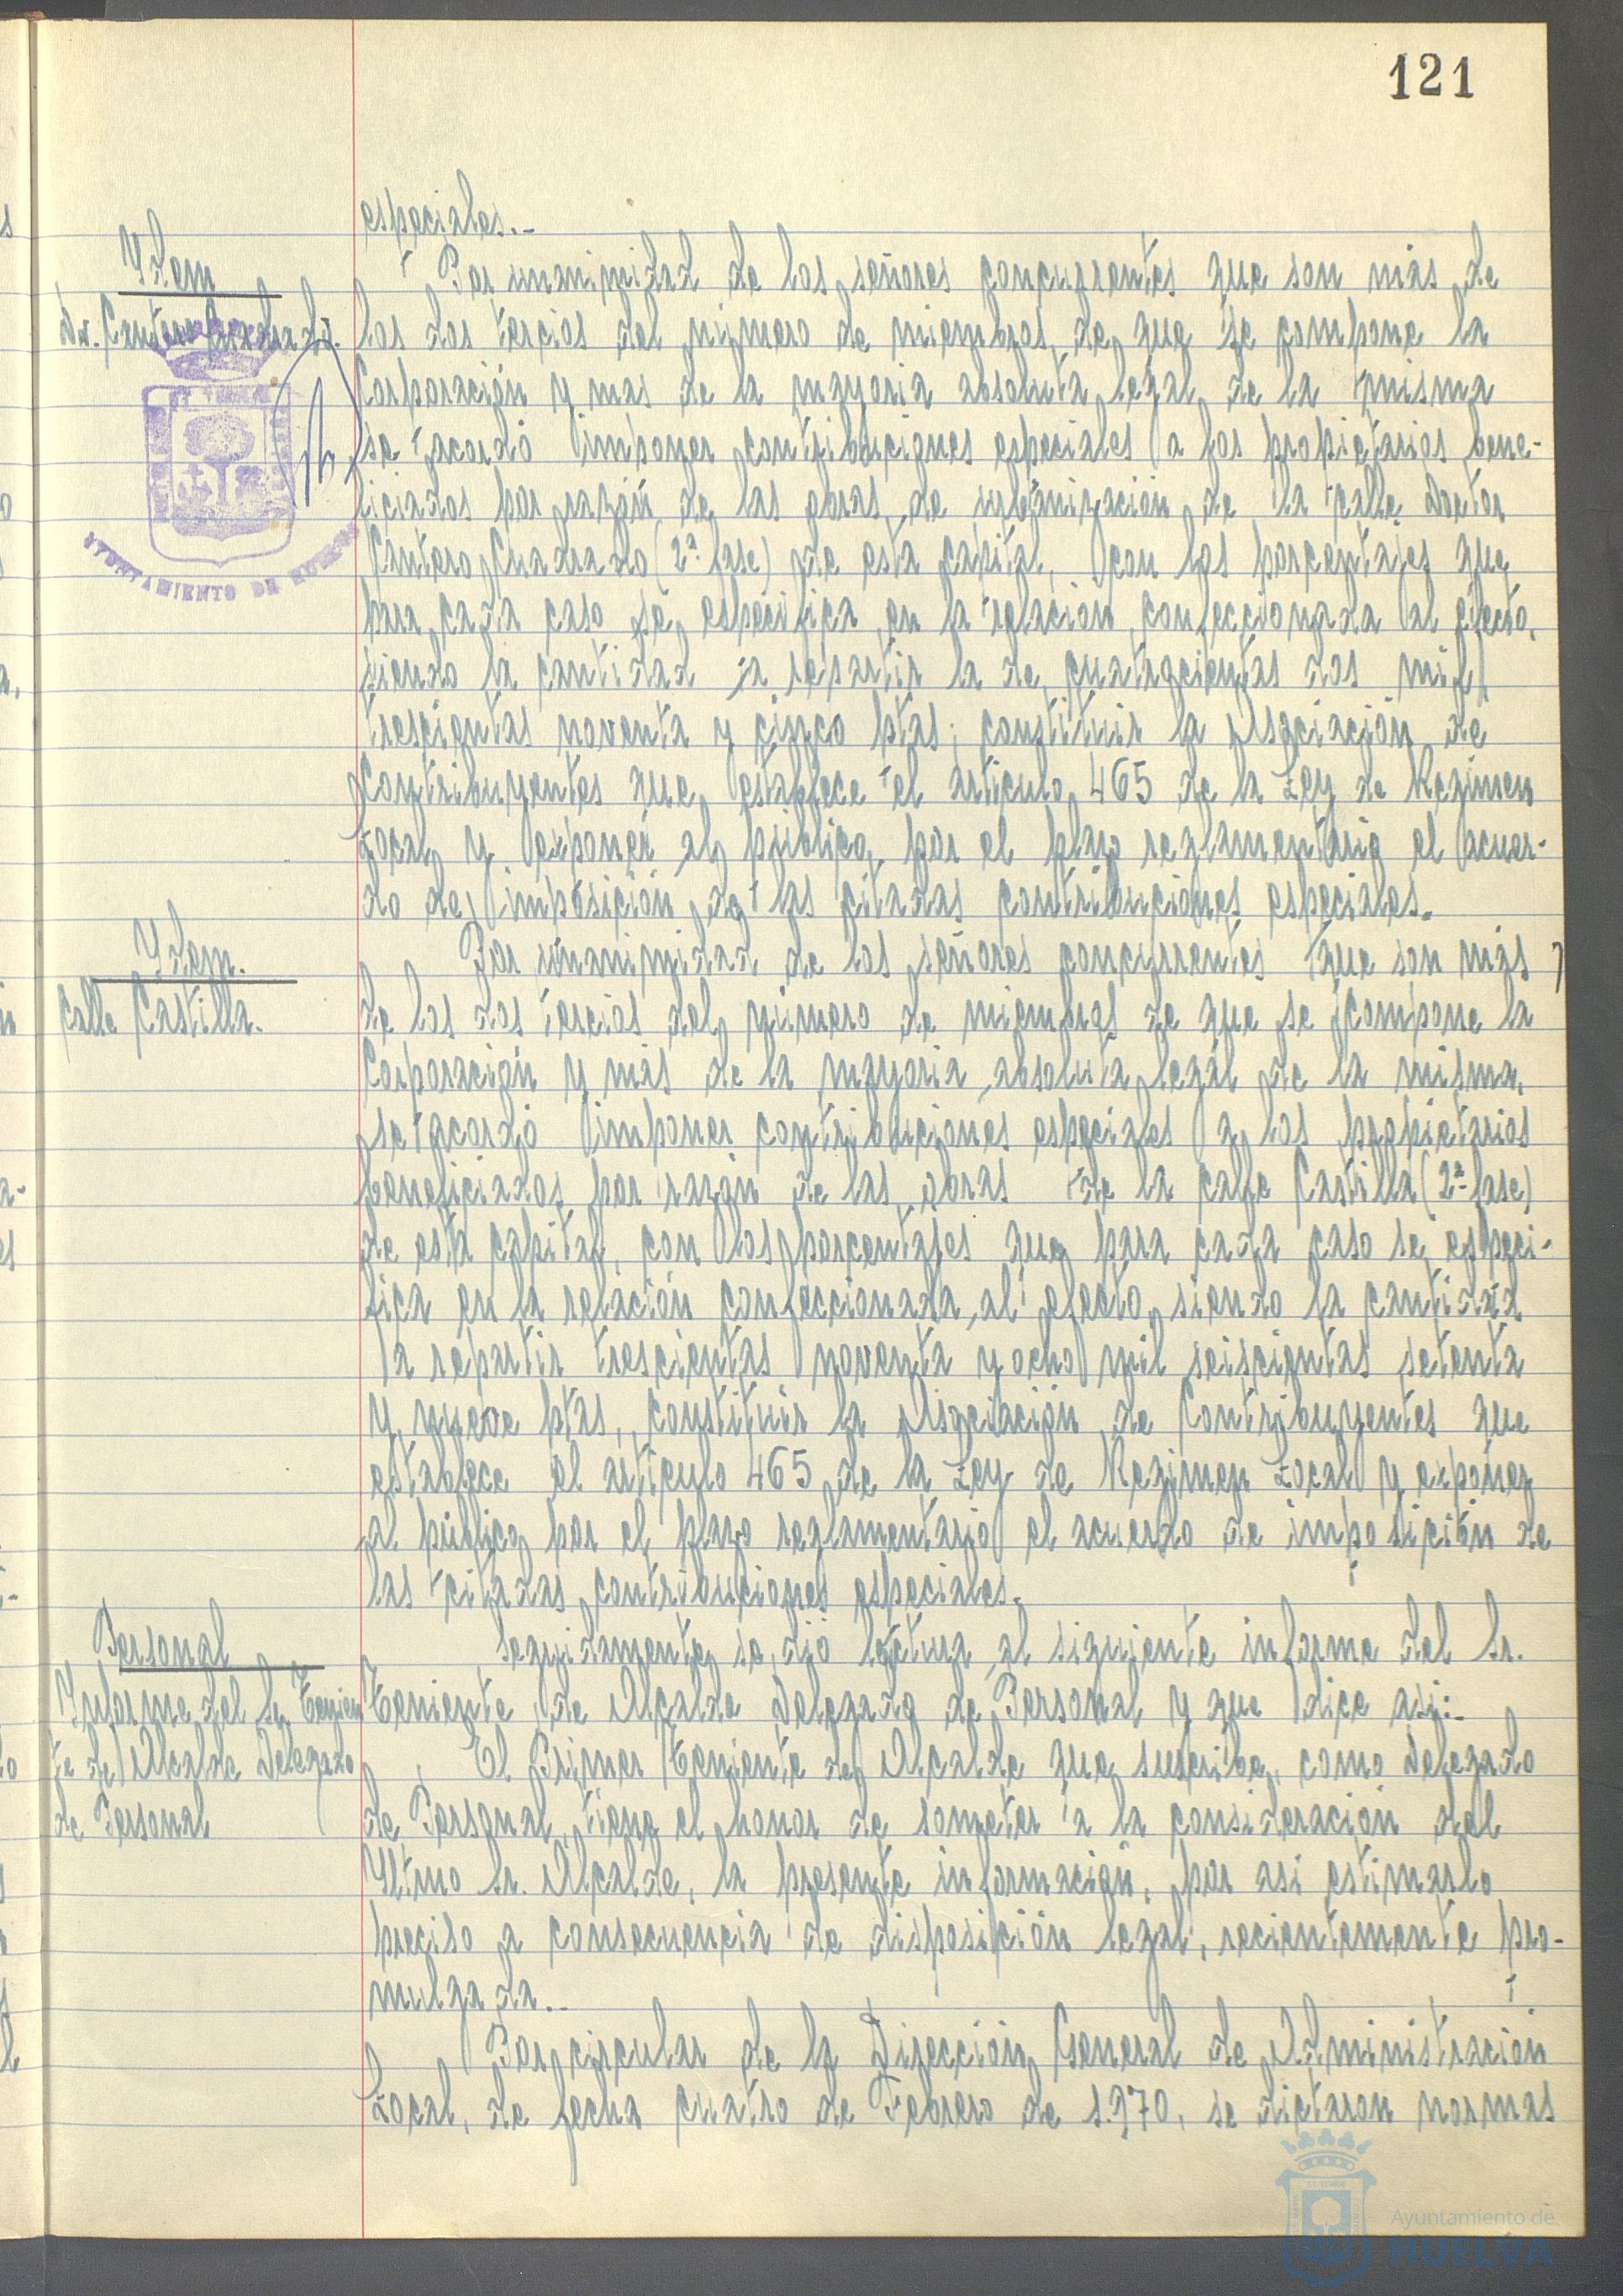 121
especiales.-
Ydem
Dr. Cantero Cuadrado.
Por unanimidad de los señores concurrentes que son más de
los dos tercios del número de miembros de que se compone la
Corporación y mas de la mayoria absoluta legal de la misma
se acordó imponer contribuciones especiales a los propietarios bene-
ficiados por razón de las obras de urbanización de la calle Doctor
Cantero Cuadrado (2ª fase) de esta capital, con los porcentajes que
para cada caso se especifica en la relación confeccionada al efecto,
siendo la cantidad a repartir la de cuatrocientas dos mil
trescientas noventa y cinco ptas; constituir la Asociación de
Contribuyentes que establece el articulo 465 de la Ley de Regimen
Local y exponer al público por el plazo reglamentario el acuer-
do de imposición de las citadas contribuciones especiales.
AYUNTAMIENTO DE HUELVA
Ydem.
Calle Castilla.
Por unanimidad de los señores concurrentes que son más
de los dos tercios del número de miembros de que se compone la
Corporación y más de la mayoria absoluta legal de la misma,
se acordó imponer contribuciones especiales a los propietarios
beneficiados por razón de las obras de la calle Castilla (2ª fase)
de esta capital, con los porcentajes que para cada caso se especi-
fica en la relación confeccionada al efecto, siendo la cantidad
a repartir trescientas noventa y ocho mil seiscientas setenta
y nueve ptas, constituir la Asociación de Contribuyentes que
establece el articulo 465 de la Ley de Regimen Local y exponer
al público por el plazo reglamentario el acuerdo de imposición de
las citadas contribuciones especiales.
Personal
Informe del Sr. Tenien
te de Alcalde Delegado
de Personal
Seguidamente se dió lectura al siguiente informe del Sr.
Teniente de Alcalde Delegado de Personal y que dice asi:-
El Primer Teniente de Alcalde que suscribe, como Delegado
de Personal, tiene el honor de someter a la consideración del
Yltmo Sr. Alcalde, la presente información, por asi estimarlo
preciso a consecuencia de disposición legal, recientemente pro-
mulgada.-
Por circular de la Dirección General de Administración
Local, de fecha cuatro de Febrero de 1.970, se dictaron normas
Ayuntamiento de
HUELVA